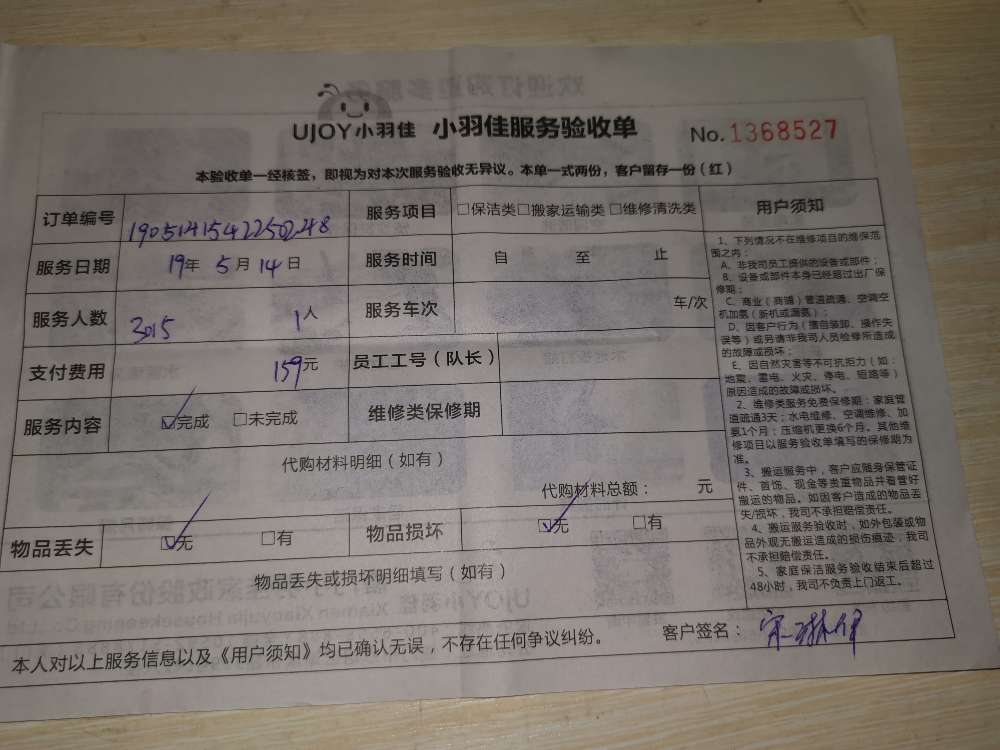 UJOY小羽佳 小羽佳服务验收单 No.1368527
本验收单一经核签，即视为对本次服务验收无异议。本单一式两份，客户留存一份（红）
订单编号 1905141542250248 服务项目 □保洁类□搬家运输类□维修清洗类
服务日期 19年5月14日 服务时间 自 至 止
服务人数 3015 1人 服务车次 车/次
支付费用 159元 员工工号（队长）
服务内容 ☑完成 □未完成 维修类保修期
代购材料明细（如有）
代购材料总额： 元
物品丢失 ☑无 □有 物品损坏 ☑无 □有
物品丢失或损坏明细填写（如有）
用户须知
1、下列情况不在维修项目的维保范
围之内：
A、非我司员工提供的设备或部件；
B、设备或部件本身已经超过出厂保
修期；
C、商业（商铺）管道疏通、空调空
机加氨（新机或漏氨）；
D、因客户行为（擅自装卸、操作失
误等）或另请非我司人员检修所造成
的故障或损坏；
E、因自然灾害等不可抗拒力（如：
地震、雷电、火灾、停电、短路等）
原因造成的故障或损坏。
2、维修类服务免费保修期：家庭管
道疏通3天；水电维修、空调维修、加
氨1个月；压缩机更换6个月。其他维
修项目以服务验收单填写的保修期为
准。
3、搬运服务中，客户应随身保管证
件、首饰、现金等贵重物品并看管好
搬运的物品。如因客户造成的物品丢
失/损坏，我司不承担赔偿责任。
4、搬运服务验收时，如外包装或物
品外观无搬运造成的损伤痕迹，我司
不承担赔偿责任。
5、家庭保洁服务验收结束后超过
48小时，我司不负责上门返工。
本人对以上服务信息以及《用户须知》均已确认无误，不存在任何争议纠纷。 客户签名：